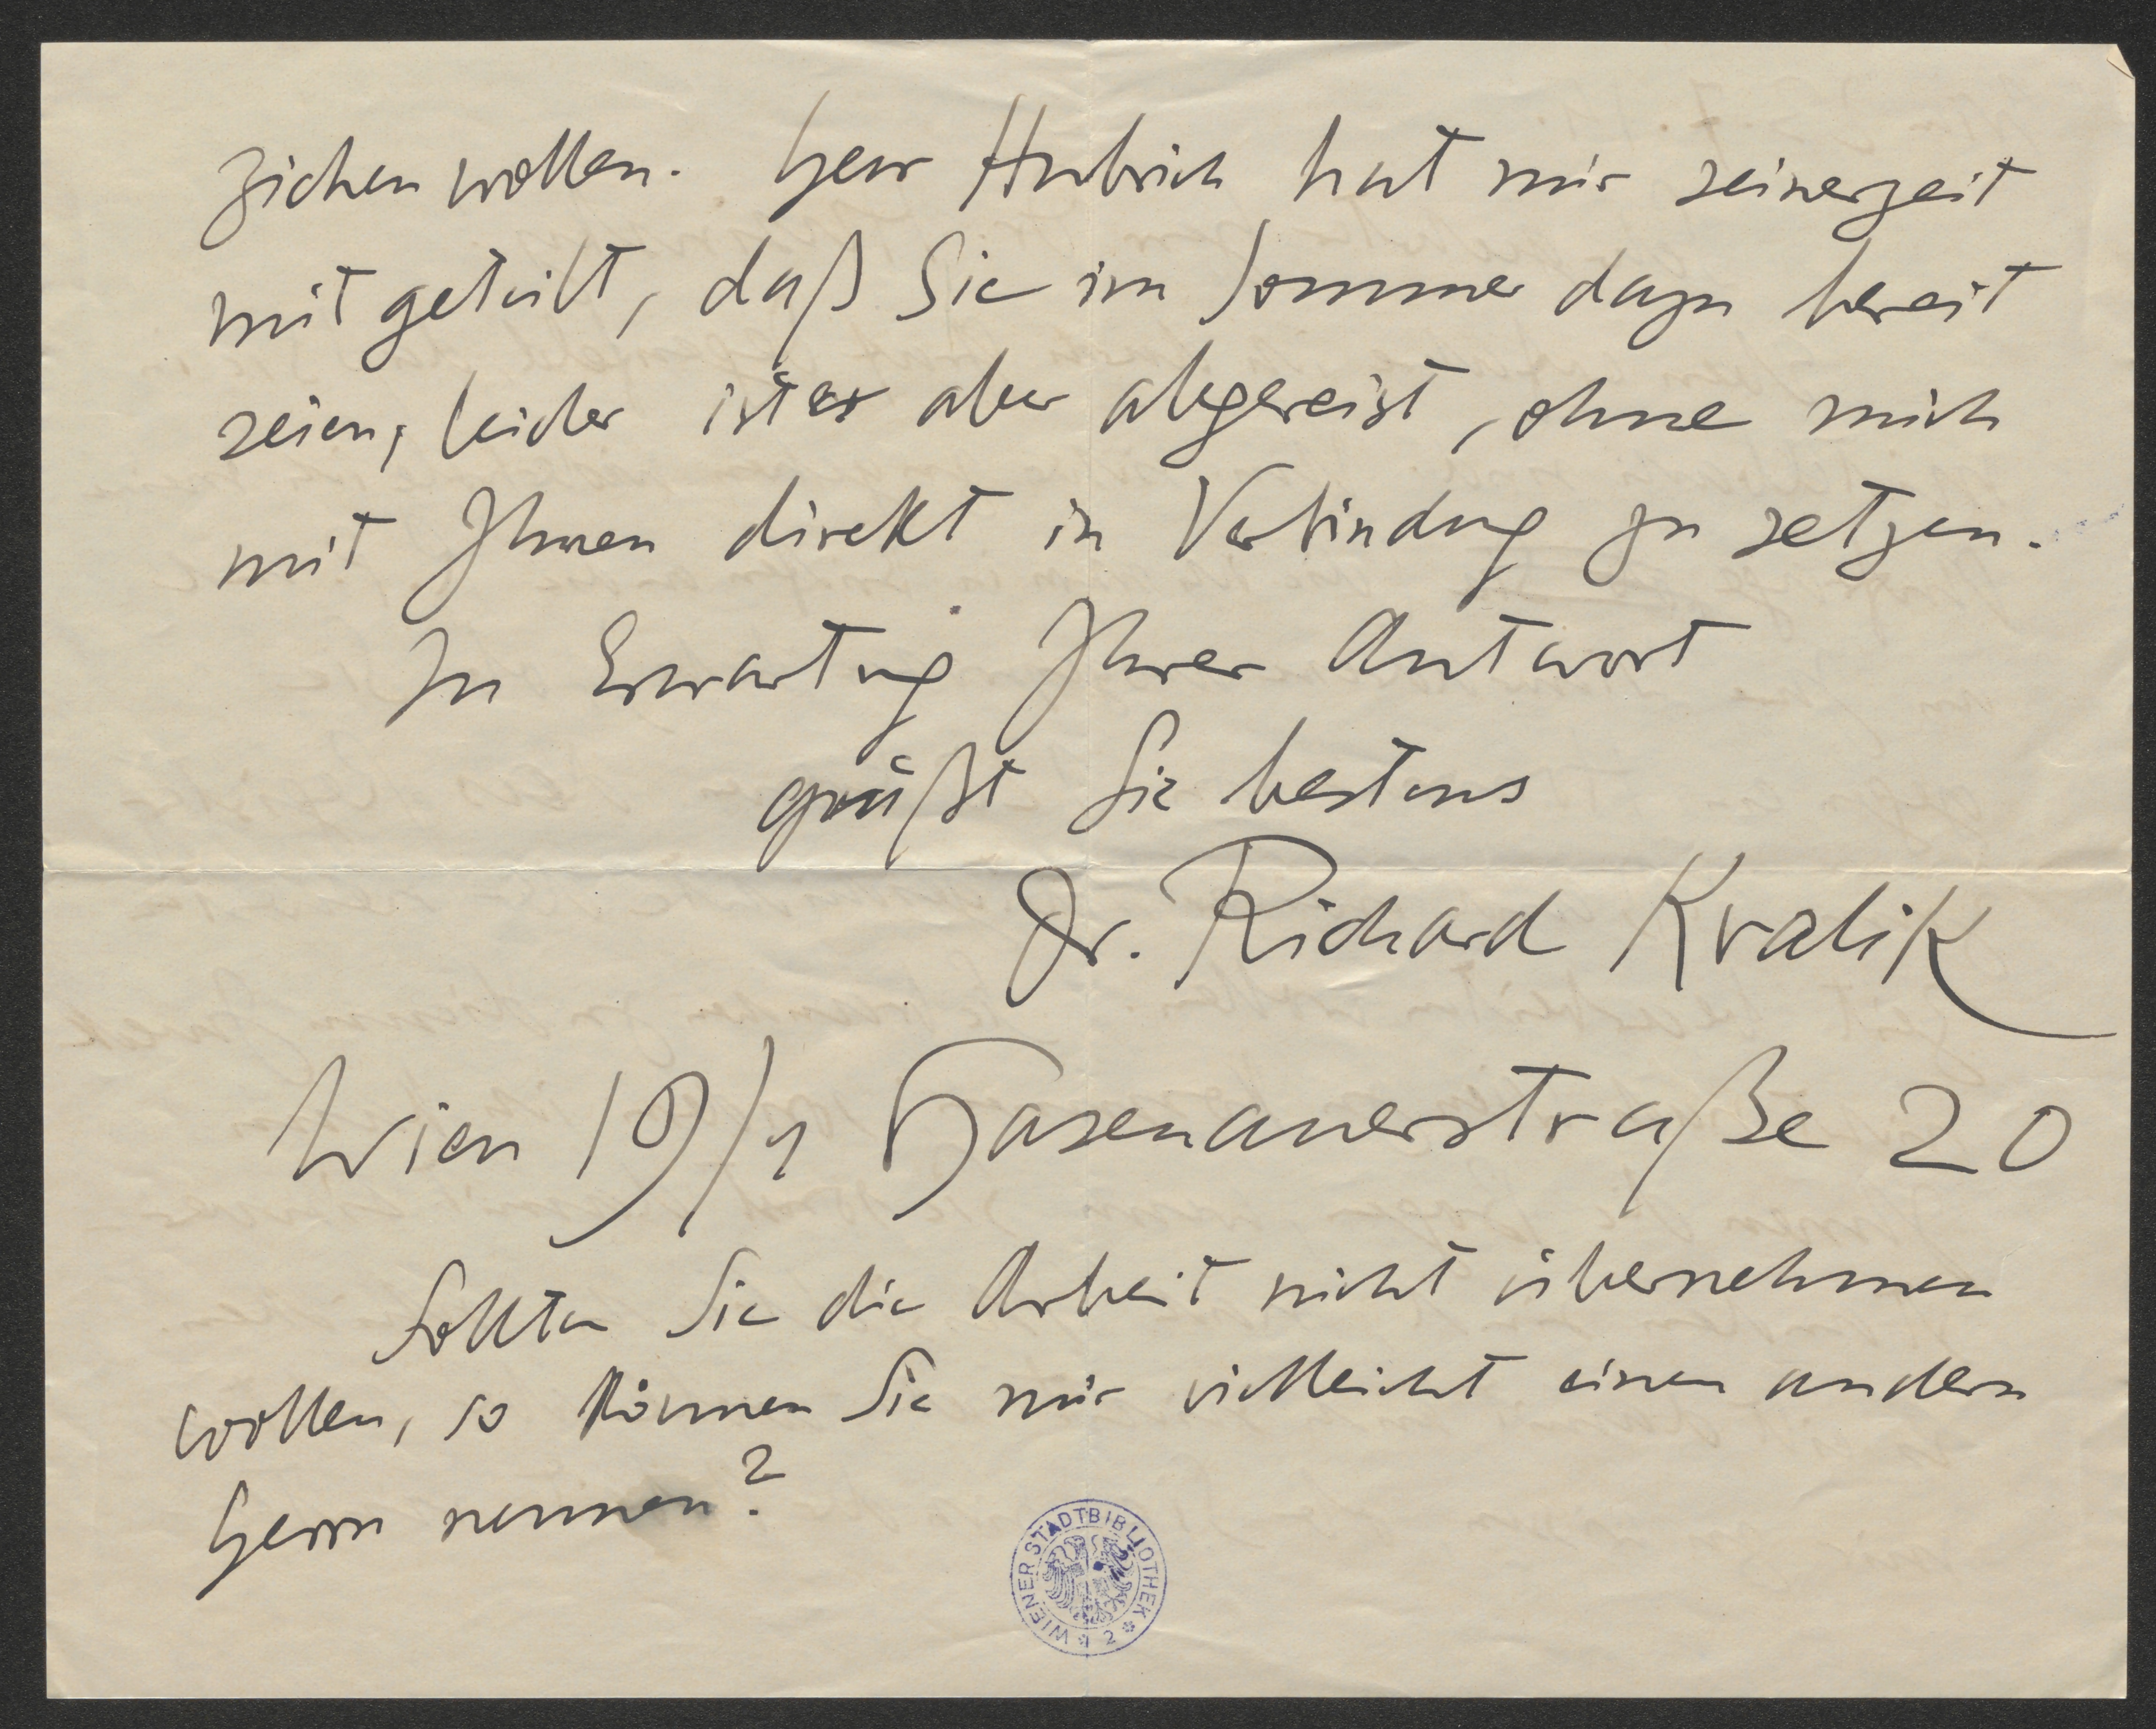 ziehen wollen. Herr Hubrich hat mir seinerzeit
mitgeteilt, daß Sie im Sommer dazu bereit
seien; leider ist er aber abgereist, ohne mich
mit Ihnen direkt in Verbindung zu setzen.
In Erwartung Ihrer Antwort
grüßt Sie bestens
Dr. Richard Kralik
Wien 19/1 Hasenauerstraße 20
Sollten Sie die Arbeit nicht übernehmen
wollen, so können Sie mir vielleicht einen andern
Herrn nennen?
WIENER STADTBIBLIOTHEK * 2 *